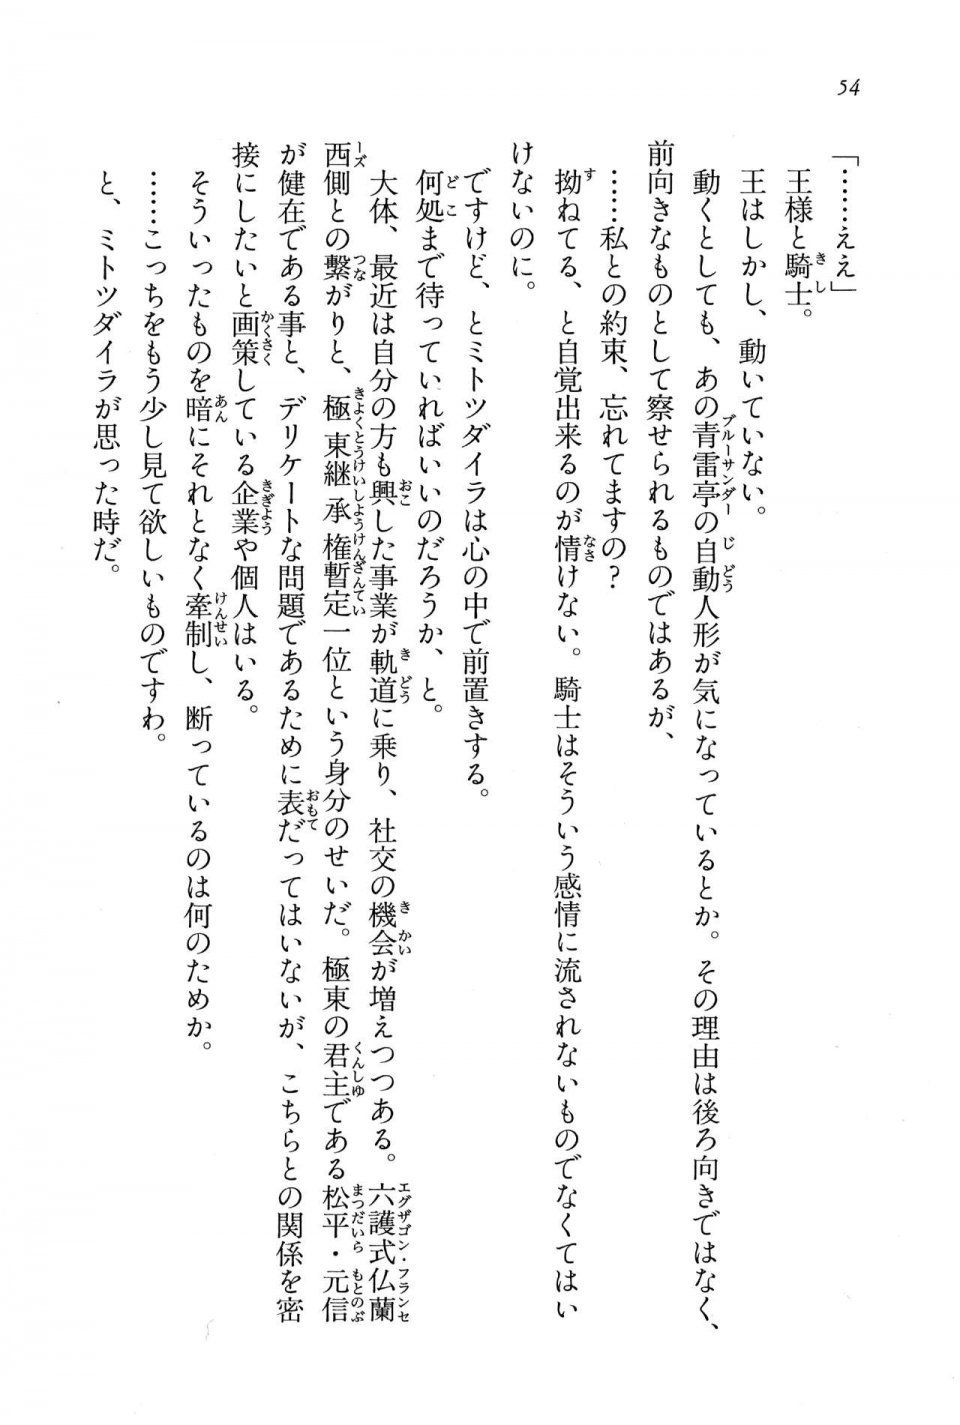 54
「……ええ」
王様と騎士。
王はしかし、動いていない。
動くとしても、あの青雷亭の自動人形が気になっているとか。その理由は後ろ向きではなく、
前向きなものとして察せられるものではあるが、
……私との約束、忘れてますの？
拗ねてる、と自覚出来るのが情けない。騎士はそういう感情に流されないものでなくてはい
けないのに。
ですけど、とミトツダイラは心の中で前置きする。
何処まで待っていればいいのだろうか、と。
大体、最近は自分の方も興した事業が軌道に乗り、社交の機会が増えつつある。六護式仏蘭
西側との繋がりと、極東継承権暫定一位という身分のせいだ。極東の君主である松平・元信
が健在である事と、デリケートな問題であるために表だってはいないが、こちらとの関係を密
接にしたいと画策している企業や個人はいる。
そういったものを暗にそれとなく牽制し、断っているのは何のためか。
……こっちをもう少し見て欲しいものですわ。
と、ミトツダイラが思った時だ。